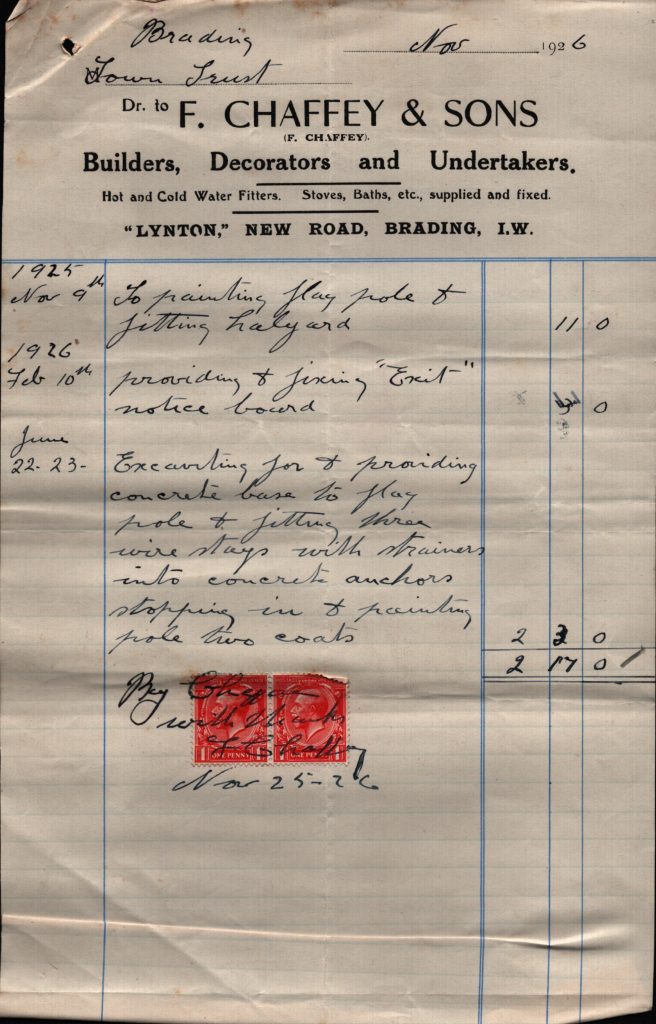 Brading Nov 1926
Town Trust
Dr. to F. CHAFFEY & SONS
(F. CHAFFEY).
Builders, Decorators and Undertakers.
Hot and Cold Water Fitters. Stoves, Baths, etc., supplied and fixed.
"LYNTON," NEW ROAD, BRADING, I.W.
1925
Nov 9th To painting flag pole &
fitting halyard 11 0
1926
Feb 10th providing & fixing "Exit"
notice board 3 0
June
22-23- Excaviting for & providing
concrete base to flag
pole & fitting three
wire stays with strainers
into concrete anchors
stopping in & painting
pole two coats 2 3 0
2 17 0
By Cheque
with thanks
F Chaffey
1 ONE PENNY 1 ONE PENNY
Nov 25-26